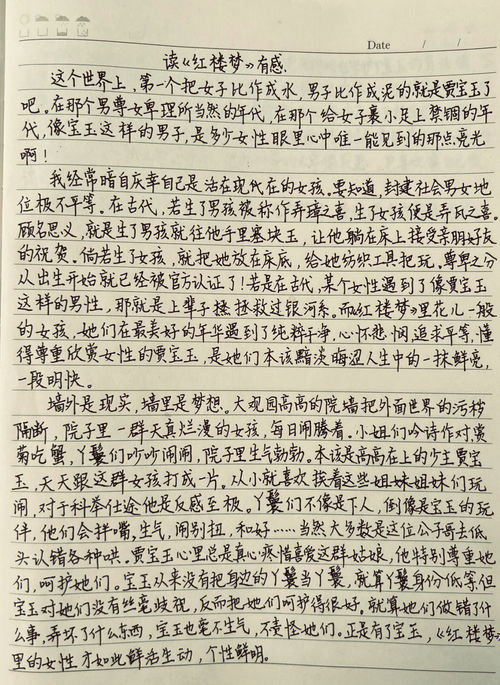 Date / /
读《红楼梦》有感.
这个世界上，第一个把女子比作成水，男子比作成泥的就是贾宝玉了
吧。在那个男尊女卑理所当然的年代，在那个给女子裹小足上禁锢的年
代，像宝玉这样的男子，是多少女性眼里心中唯一能见到的那点亮光
啊！
我经常暗自庆幸自己是活在现代在的女孩。要知道，封建社会男女地
位极不平等。在古代，若生了男孩被称作弄璋之喜，生了女孩便是弄瓦之喜。
顾名思义，就是生了男孩就往他手里塞块玉，让他躺在床上接受亲朋好友
的祝贺。倘若生了女孩，就把她放在床底，给她纺织工具把玩。尊卑之分
从出生开始就已经被官方认证了！若是在古代，某个女性遇到了像贾宝玉
这样的男性，那就是上辈子拯救过银河系。而《红楼梦》里花儿一般
的女孩，她们在最美好的年华遇到了纯粹干净，心怀悲悯，追求平等，懂
得尊重欣赏女性的贾宝玉，是她们本该黯淡晦涩人生中的一抹鲜亮，
一段明快。
墙外是现实，墙里是梦想。大观园高高的院墙把外面世界的污秽
隔断，院子里一群天真烂漫的女孩，每日闹腾着。小姐们吟诗作对赏
菊吃蟹，丫鬟们吵吵闹闹，院子里生气勃勃。本该是高高在上的少主贾宝
玉，天天跟这群女孩打成一片。从小就喜欢挨着这些姐妹姐妹们玩
闹，对于科举仕途他是反感至极。丫鬟们不像是下人，倒像是宝玉的玩
伴，他们会拌嘴，生气，闹别扭，和好……当然大多数是这位公子哥去低
头认错各种哄。贾宝玉心里总是真心疼惜喜爱这群姑娘，他特别尊重她
们，呵护她们。宝玉从来没有把身边的丫鬟当丫鬟，就算丫鬟身份低等，但
宝玉对她们没有丝毫歧视，反而把她们呵护得很好。就算她们做错了什
么事，弄坏了什么东西，宝玉也毫不生气，不责怪她们。正是有了宝玉，《红楼梦》
里的女性才如此鲜活生动，个性鲜明。